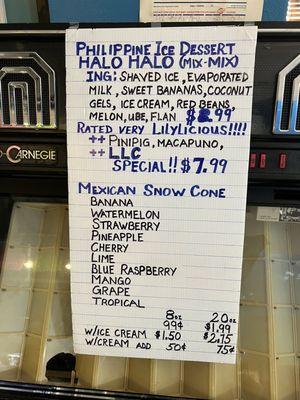 Philippine Ice Dessert
Halo Halo (Mix-Mix)
Ing: Shaved Ice, Evaporated
Milk, Sweet Bananas, Coconut
Gels, Ice Cream, Red Beans,
Melon, Ube, Flan
Rated very Lilylicious!!!!
++ Pinipig, Macapuno,
++ LLC
Special!! $7.99
Carnegie
Mexican Snow Cone
Banana
Watermelon
Strawberry
Pineapple
Cherry
Lime
Blue Raspberry
Mango
Grape
Tropical
8oz 20oz
99¢ $1.99
w/Ice Cream $1.50 $2.75
w/Cream add 50¢ 75¢